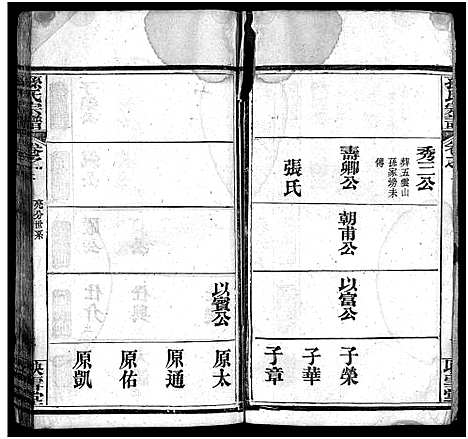 秀二公
葬五雲山
孫家塝未
傳
壽卿公
張氏
朝甫公
以富公
子榮
子華
子章
以賓公
原太
原通
原佑
原凱
孫氏宗譜
卷之十
亮分世系
映雪堂